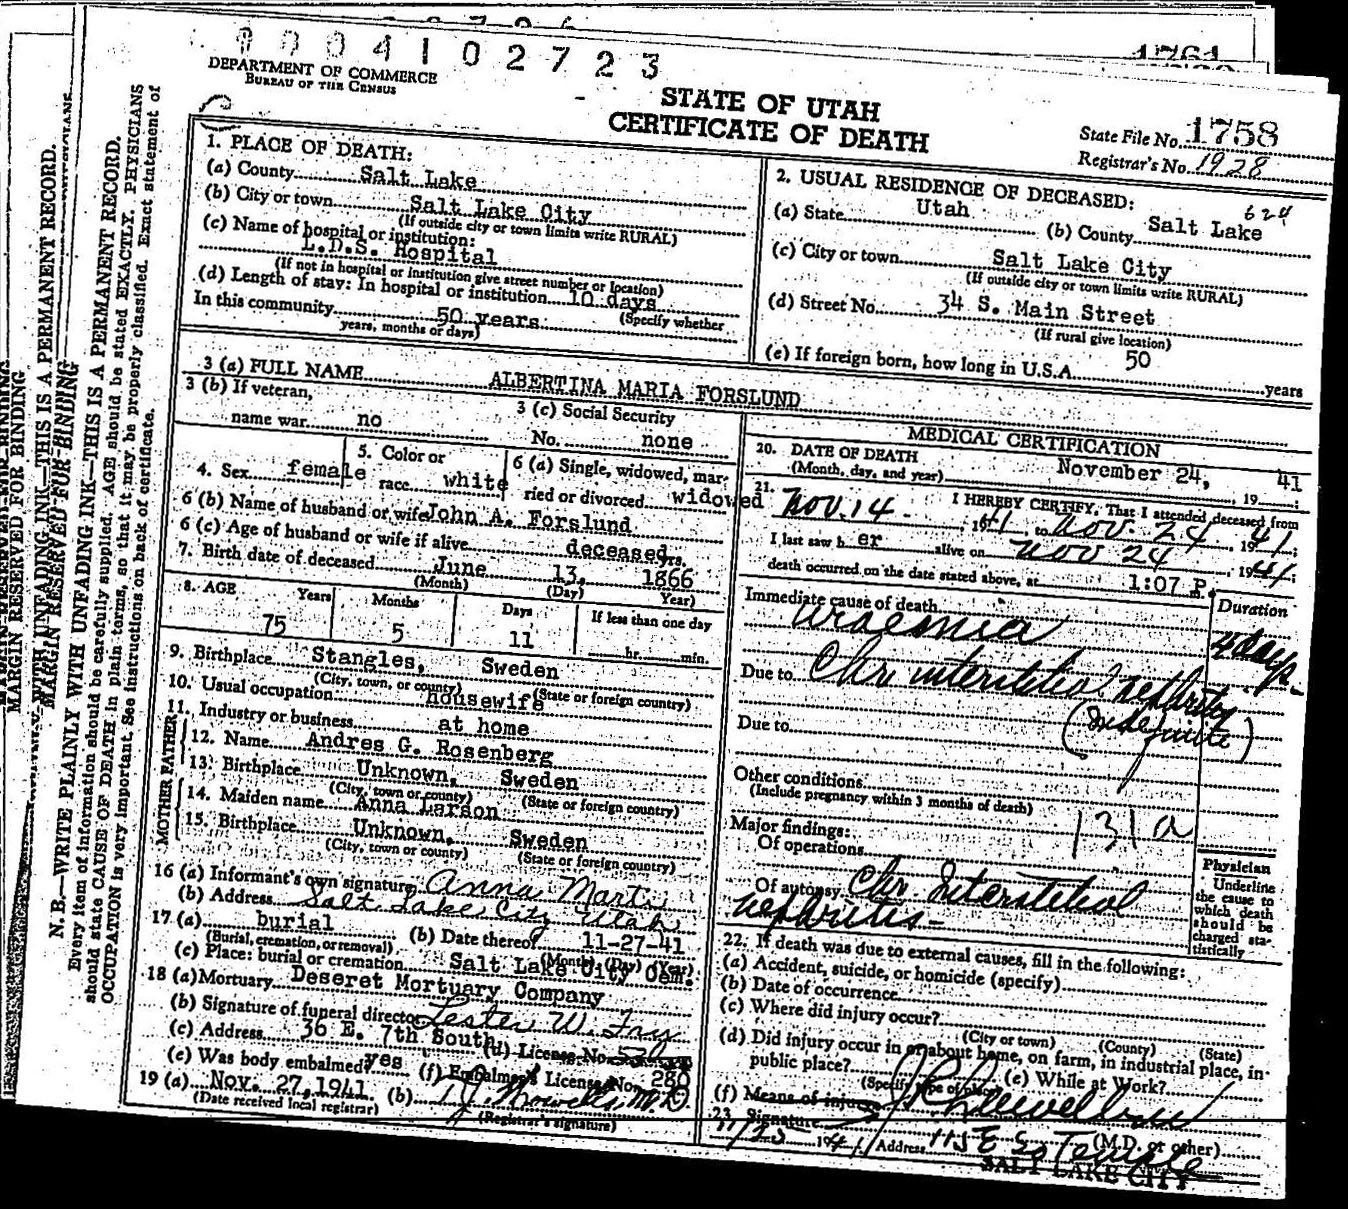 0004102723
1761
DEPARTMENT OF COMMERCE
BUREAU OF THE CENSUS
STATE OF UTAH
CERTIFICATE OF DEATH
State File No. 1758
Registrar's No. 1928
MARGIN RESERVED FOR BINDING
N. B.—WRITE PLAINLY WITH UNFADING INK—THIS IS A PERMANENT RECORD.
Every item of information should be carefully supplied. AGE should be stated EXACTLY. PHYSICIANS
should state CAUSE OF DEATH in plain terms, so that it may be properly classified. Exact statement of
OCCUPATION is very important. See instructions on back of certificate.
1. PLACE OF DEATH:
(a) County Salt Lake
(b) City or town Salt Lake City
(If outside city or town limits write RURAL)
(c) Name of hospital or institution:
L.D.S. Hospital
(If not in hospital or institution give street number or location)
(d) Length of stay: In hospital or institution 10 days
(Specify whether
In this community 50 years
years, months or days)
2. USUAL RESIDENCE OF DECEASED:
624
(a) State Utah (b) County Salt Lake
(c) City or town Salt Lake City
(If outside city or town limits write RURAL)
(d) Street No. 34 S. Main Street
(If rural give location)
(e) If foreign born, how long in U.S.A. 50 years
3 (a) FULL NAME ALBERTINA MARIA FORSLUND
3 (b) If veteran,
name war no
3 (c) Social Security
No. none
4. Sex female
5. Color or
race white
6 (a) Single, widowed, mar-
ried or divorced widowed
6 (b) Name of husband or wife John A. Forslund
6 (c) Age of husband or wife if alive deceased yrs.
7. Birth date of deceased June 13, 1866
(Month) (Day) Year)
8. AGE Years Months Days If less than one day
75 5 11 hr. min.
9. Birthplace Stangles, Sweden
(City, town, or county) (State or foreign country)
10. Usual occupation housewife
11. Industry or business at home
FATHER
12. Name Andres G. Rosenberg
13. Birthplace Unknown, Sweden
(City, town or county) (State or foreign country)
MOTHER
14. Maiden name Anna Larson
15. Birthplace Unknown, Sweden
(City, town or county) (State or foreign country)
16 (a) Informant's own signature Anna Marti
(b) Address Salt Lake City Utah
17 (a) burial (b) Date thereof 11-27-41
(Burial, cremation, or removal) (Month) (Day) (Year)
(c) Place: burial or cremation Salt Lake City Cem.
18 (a) Mortuary Deseret Mortuary Company
(b) Signature of funeral director Lester W. Fry
(c) Address 36 E. 7th South (d) License No.
(e) Was body embalmed? yes (f) Embalmer's License No. 280
19 (a) Nov. 27, 1941 (b) M.D.
(Date received local registrar) (Registrar's signature)
MEDICAL CERTIFICATION
20. DATE OF DEATH
(Month, day, and year) November 24, 19 41
21. I HEREBY CERTIFY, That I attended deceased from
Nov. 14 1941 to Nov. 24 1941;
I last saw h er alive on Nov 24 1941;
death occurred on the date stated above, at 1:07 P.
Duration
Immediate cause of death
Uraemia 4 days
Due to Chr interstitial nephritis
(Indefinite)
Due to
Other conditions
(Include pregnancy within 3 months of death)
131a
Major findings:
Of operations
Of autopsy Chr. Interstitial
nephritis
Physician
Underline
the cause to
which death
should be
charged sta-
tistically
22. If death was due to external causes, fill in the following:
(a) Accident, suicide, or homicide (specify)
(b) Date of occurrence
(c) Where did injury occur?
(City or town) (County) (State)
(d) Did injury occur in or about home, on farm, in industrial place, in
public place?
(Specify type of place) (e) While at Work?
(f) Means of injury
23. Signature Llewellyn
(M.D. or other)
1941 Address 115 E So Temple
SALT LAKE CITY